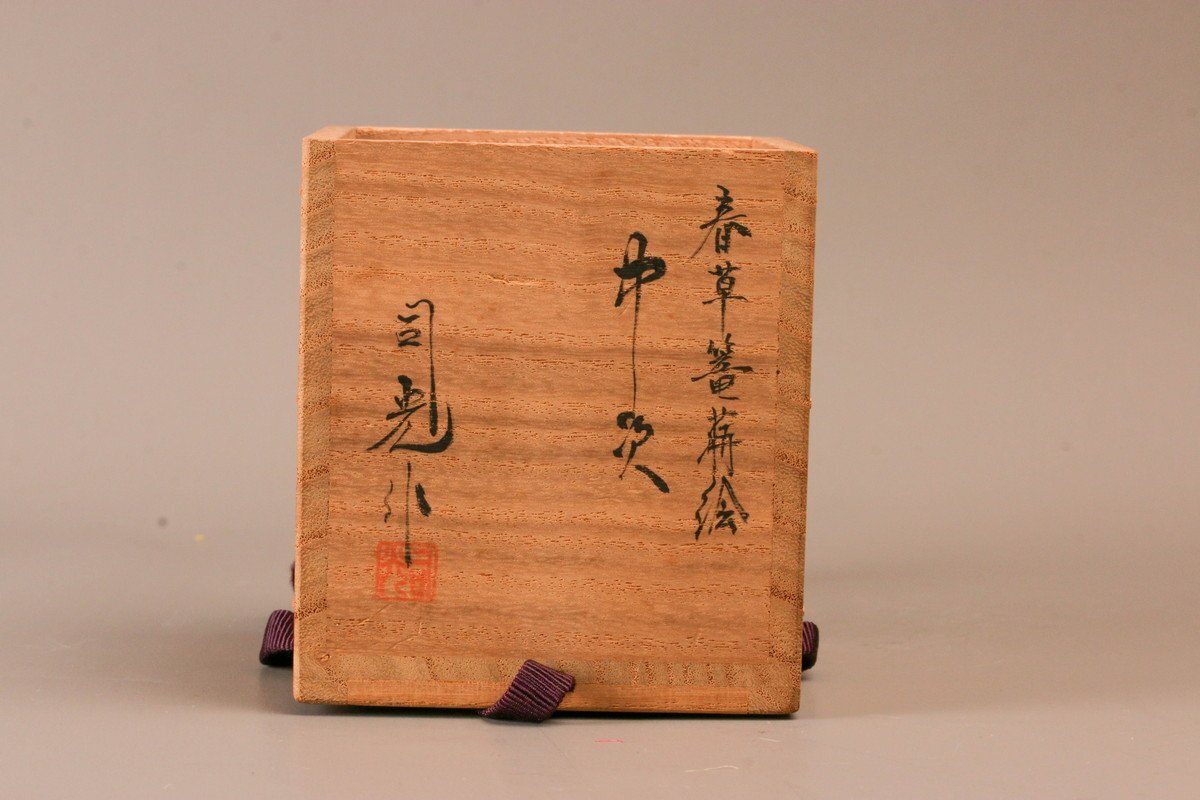 春草籠蒔絵
中次
司光作